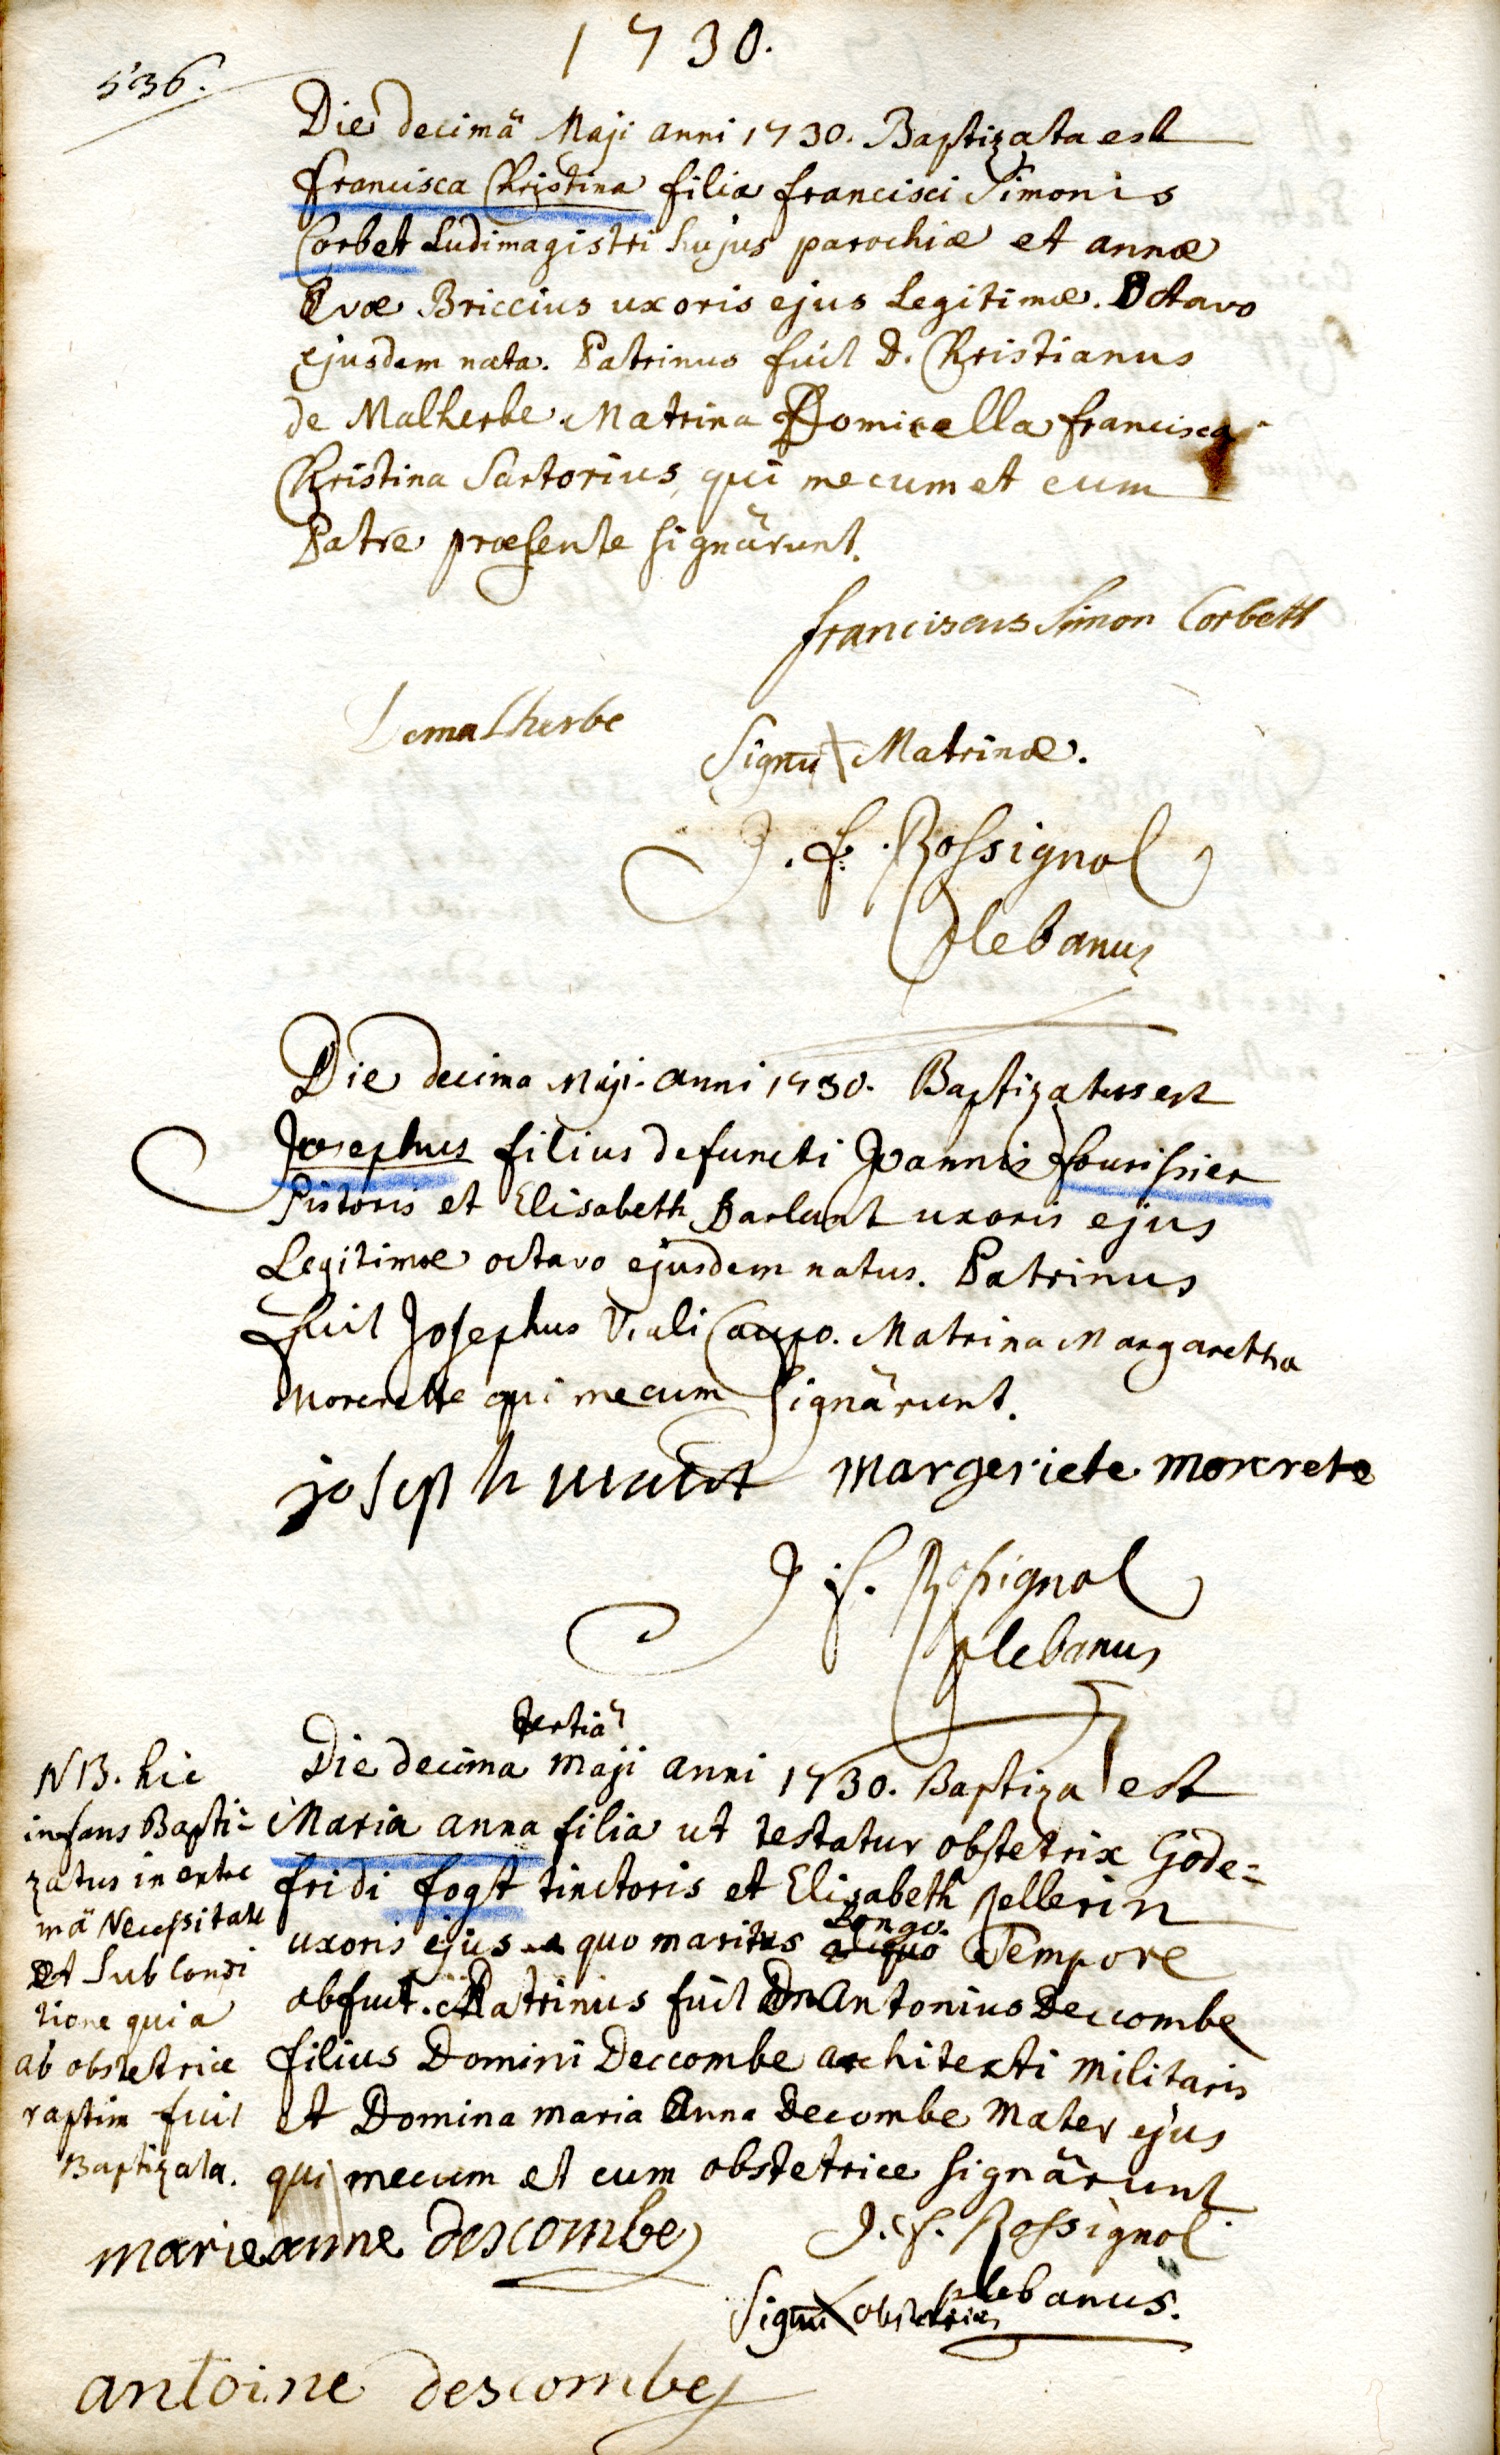 1730.
536.
Die decimâ Maji anni 1730. Baptizata est
Francisca Christina filia francisci Simonis
Corbet Ludimagistri hujus parochiæ et annæ
Evæ Briccius uxoris ejus Legitimæ. Octavo
ejusdem nata. Patrinus fuit D. Christianus
de Malherbe. Matrina Domicella francisca
Christina Sartorius, qui mecum et cum
Patre præsente signârunt.
franciscus Simon Corbett
Demalherbe
Signū Matrinæ.
J. f. Rossignol
Plebanus
Die decima Maji anni 1730. Baptizatus est
Josephus filius defuncti Joannis
Pistoris et Elisabeth uxoris ejus
Legitimæ octavo ejusdem natus. Patrinus
fuit Josephus Viali Caupo. Matrina Margaretha
Morcrette qui mecum signârunt.
joseph
Margeriete morcrete
J. f. Rossignol
plebanus
tertiâ
Die decima Maji anni 1730. Baptiza est
Maria anna filia ut testatur obstetrix Gode=
fridi fogt tinctoris et Elisabeth Pellerin
Longo
uxoris ejus a quo maritus aliquo Tempore
abfuit. Patrinus fuit Dn Antonius Deccombe
filius Domini Deccombe architecti militaris
et Domina maria Anna Decombe Mater ejus
qui mecum et cum obstetrice signârunt
NB. hic
infans Bapti-
zatus in extre
mâ Necessitate
et sub Condi
tione quia
ab obstetrice
raptim fuit
Baptizata.
marie anne descombes
J. f. Rossignol
plebanus.
Signū obstetricis
antoine descombes